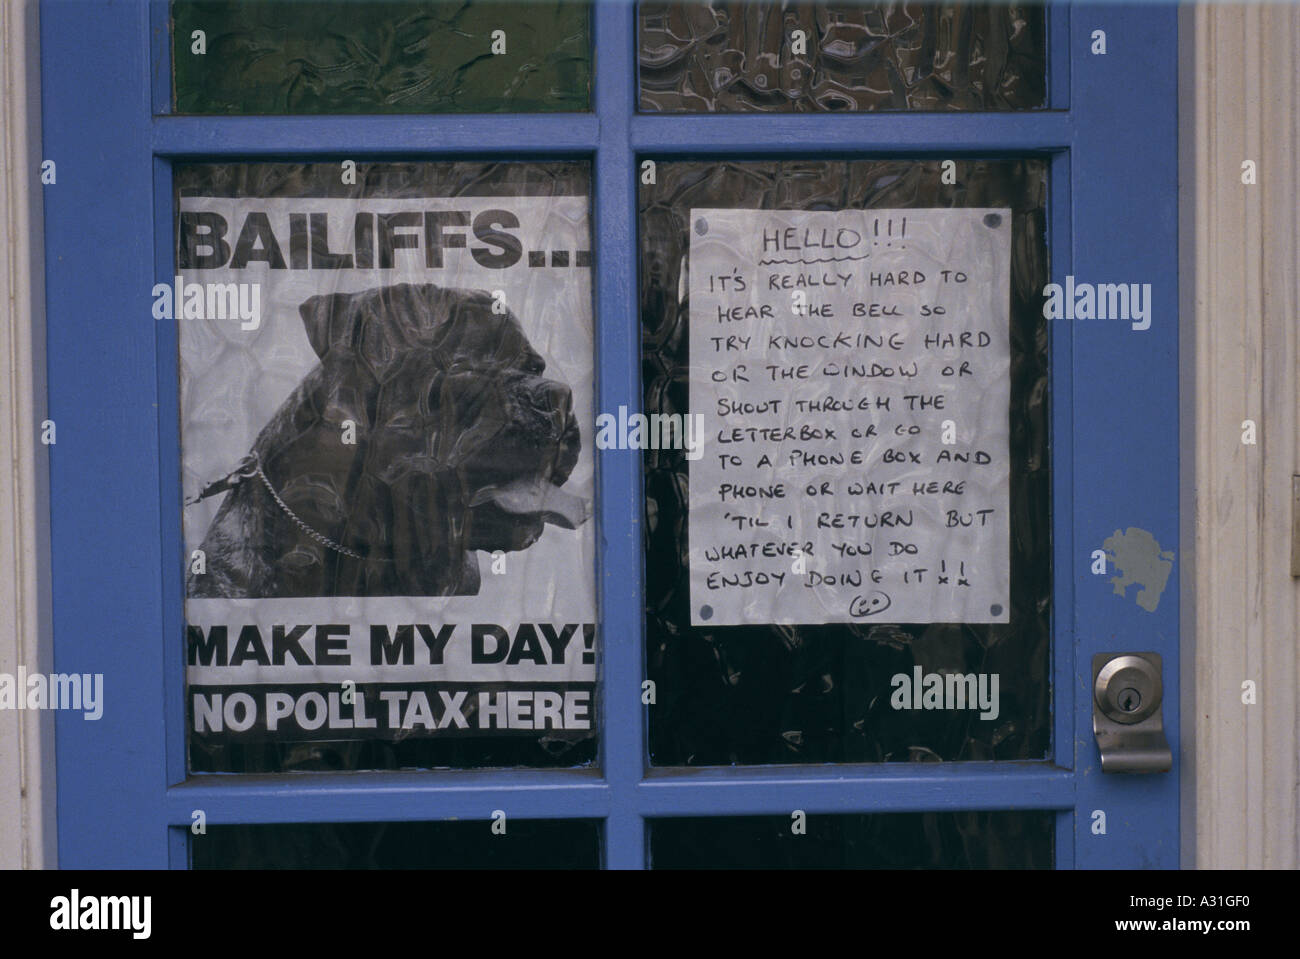 BAILIFFS...
MAKE MY DAY!
NO POLL TAX HERE
HELLO!!!
IT'S REALLY HARD TO
HEAR THE BELL SO
TRY KNOCKING HARD
OR THE WINDOW OR
SHOUT THROUGH THE
LETTERBOX OR GO
TO A PHONE BOX AND
PHONE OR WAIT HERE
'TIL I RETURN BUT
WHATEVER YOU DO
ENJOY DOING IT!!
a
a
a
a
alamy
alamy
alamy
alamy
alamy
alamy
alamy
Image ID: A31GF0
www.alamy.com